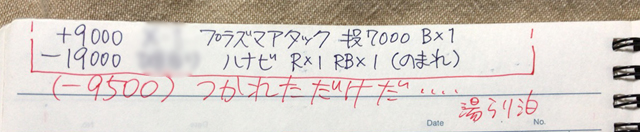 +9000 プラズマアタック 投7000 B×1
-19000 ハナビ R×1 RB×1 (のまれ)
(-9500) つかれただけだ....
湯らり泊
Date No.